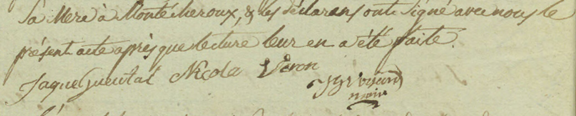 Sa Mere à Montécheroux, & les déclarans ont signé avec nous le
présent acte après que lecture leur en a été faite.
Jaque Guental Nicole Véron
maire